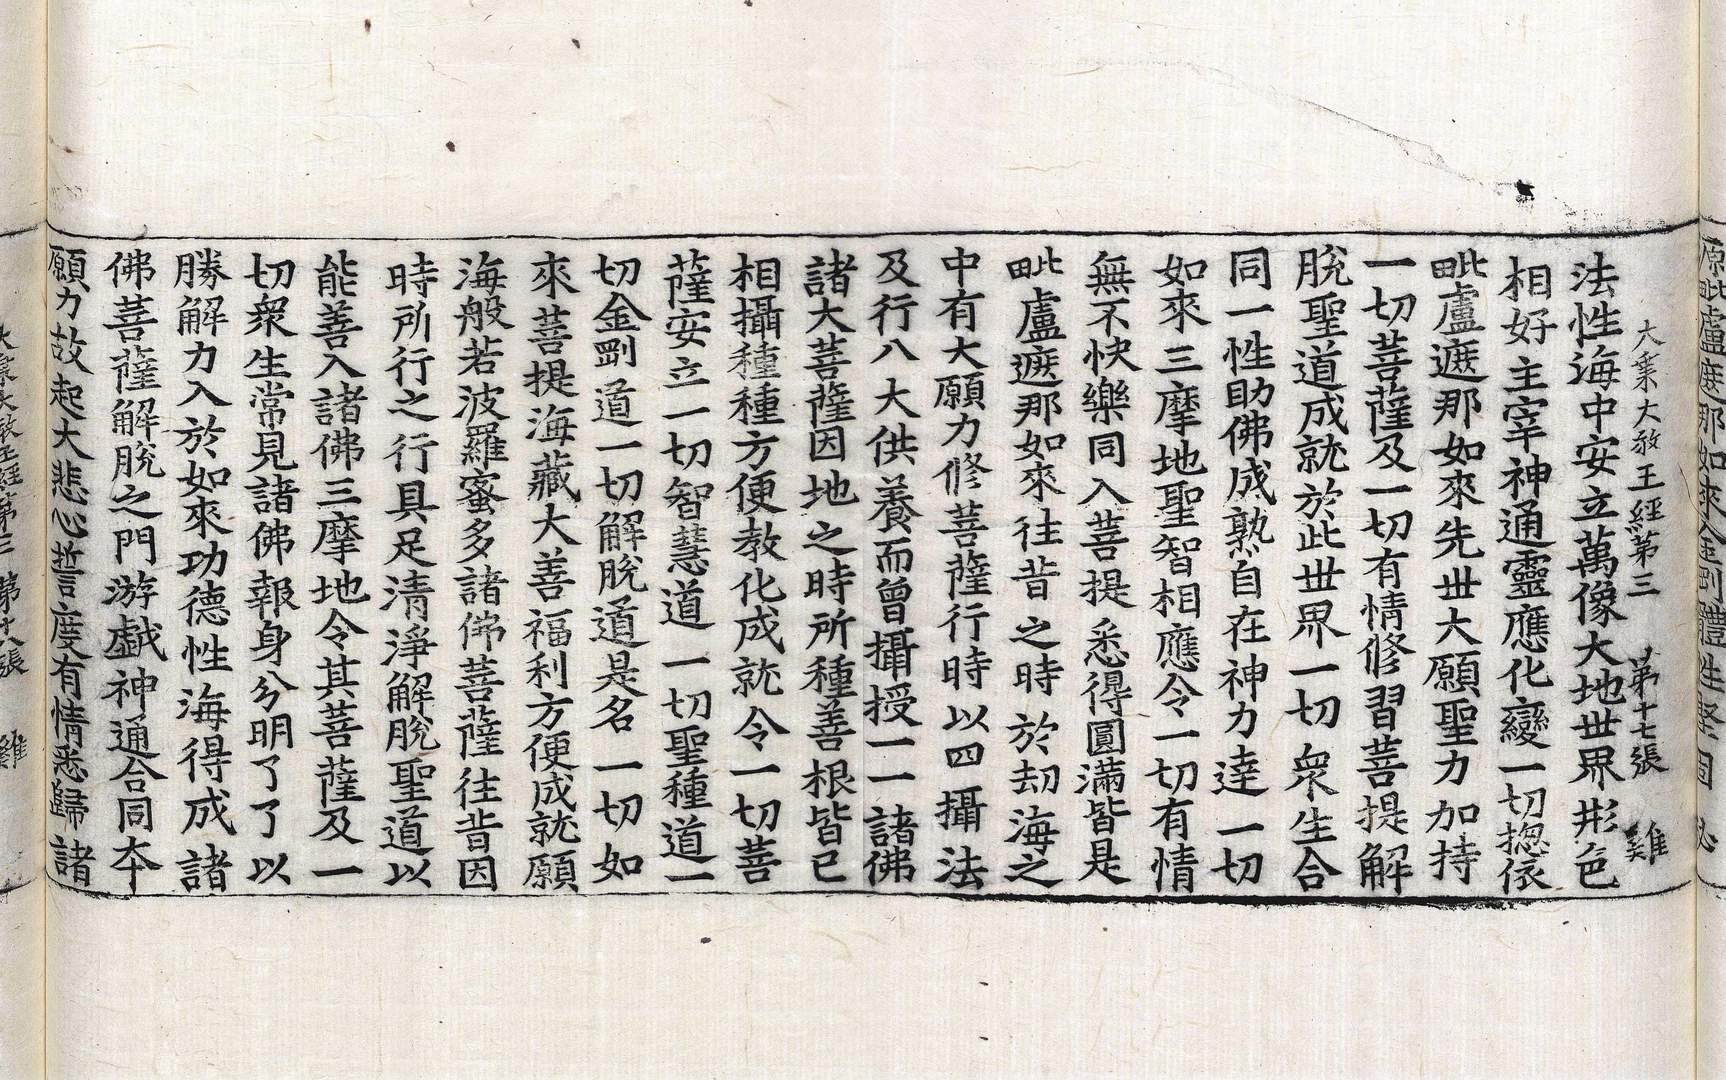 大乗大教王經第三　第十七張　雞
法性海中安立萬像大地世界形色
相好主宰神通靈應化變一切揔依
毗盧遮那如來先世大願聖力加持
一切菩薩及一切有情修習菩提解
脫聖道成就於此世界一切衆生合
同一性助佛成熟自在神力達一切
如來三摩地聖智相應令一切有情
無不快樂同入菩提悉得圓滿皆是
毗盧遮那如來往昔之時於劫海之
中有大願力修菩薩行時以四攝法
及行八大供養而曾攝授一一諸佛
諸大菩薩因地之時所種善根皆已
相攝種種方便教化成就令一切菩
薩安立一切智慧道一切聖種道一
切金剛道一切解脫道是名一切如
來菩提海藏大善福利方便成就願
海般若波羅蜜多諸佛菩薩往昔因
時所行之行具足清淨解脫聖道以
能善入諸佛三摩地令其菩薩及一
切衆生常見諸佛報身分明了了以
勝解力入於如來功德性海得成諸
佛菩薩解脫之門游戱神通合同夲
願力故起大悲心誓度有情悉歸諸
大乗大教王經第三　第十八張　雞